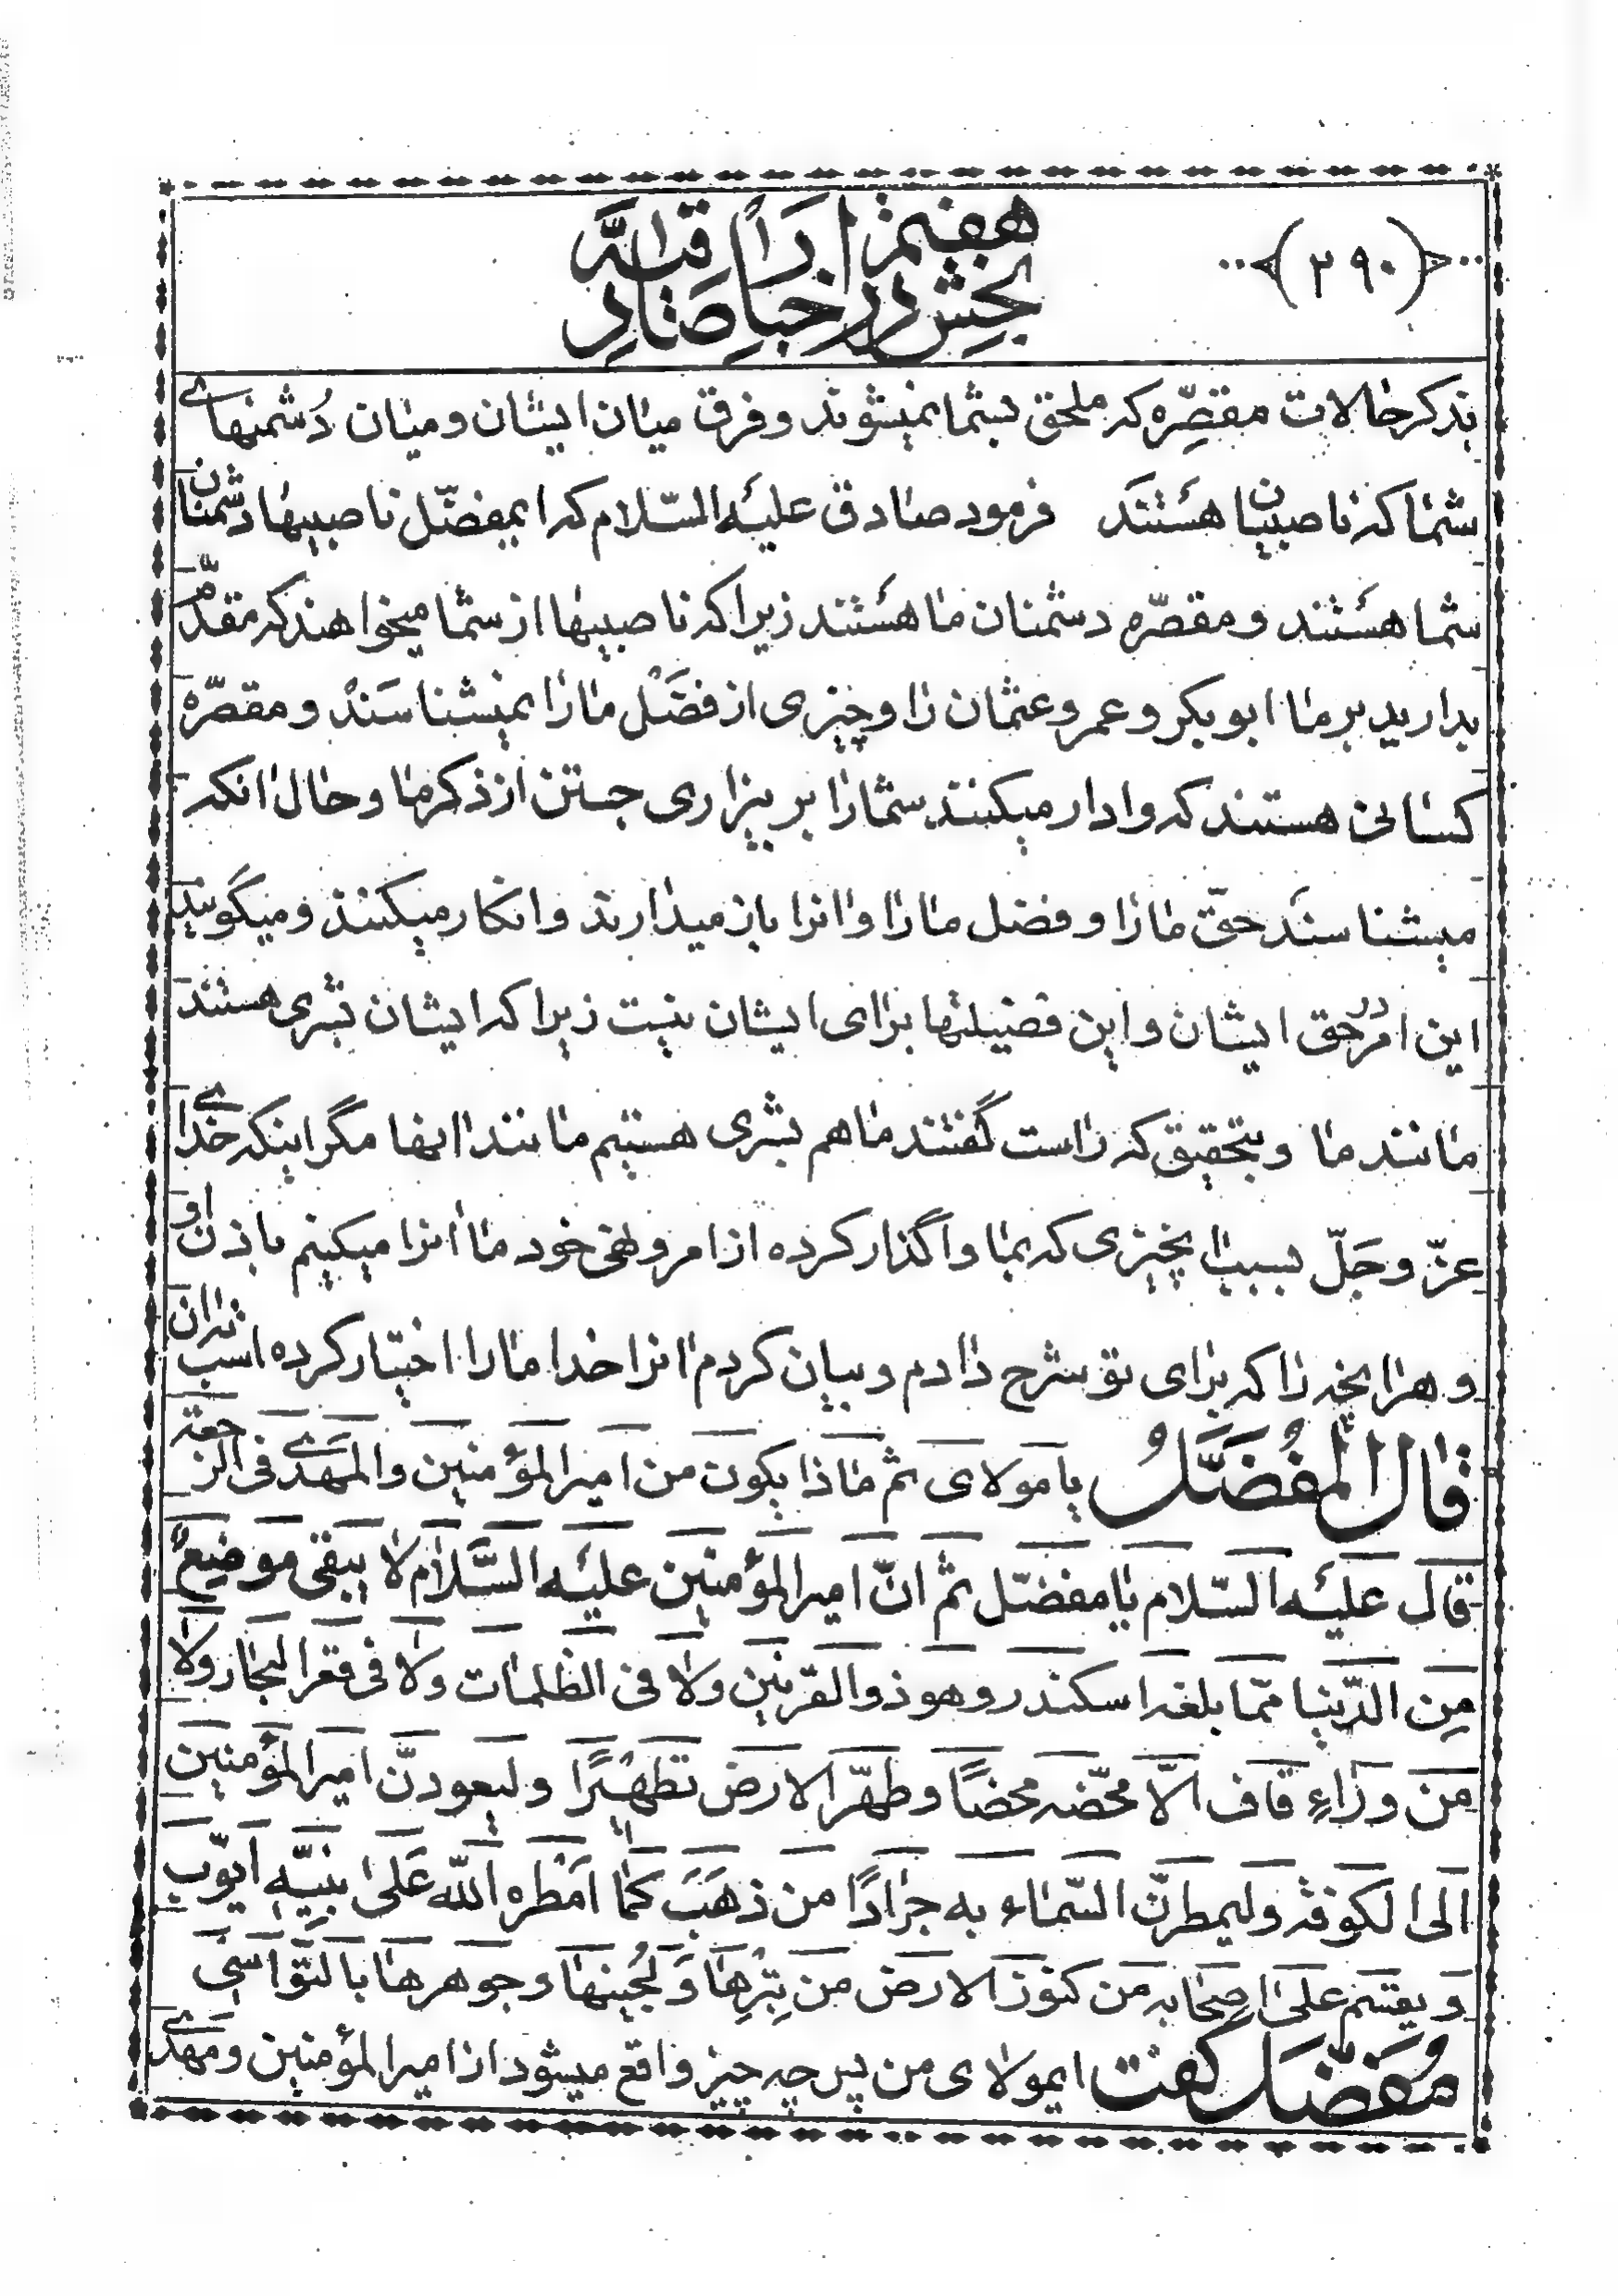 (۲۹۰)
بخش هفتم در اخبار صادقیه
بذکر حالات مقصّره که ملحق بشما نمیشوند و فرق میان ایشان و میان دشمنهای
شما که ناصبیان هستند فرمود صادق علیه السّلام که ایمفضّل ناصبیها دشمنان
شما هستند و مقصّره دشمنان ما هستند زیرا که ناصبیها از شما میخواهند که مقدّم
بدارید بر ما ابوبکر و عمر و عثمان را و چیزی از فضل ما را نمیشناسند و مقصّره
کسانی هستند که وادار میکنند شما را بر بیزاری جستن از ذکر ما و حال آنکه
میشناسند حقّ ما را و فضل ما را و آنرا باز میدارند و انکار میکنند و میگویند
این امر در حق ایشان و این فضیلتها برای ایشان نیست زیرا که ایشان بشری هستند
مانند ما و بتحقیق که راست گفتند ما هم بشری هستیم مانند آنها مگر اینکه خدای
عزّ و جلّ بسبب آنچیزی که بما واگذار کرده از امر و نهی خود ما آنرا میکنیم باذن او
و هر آنچه را که برای تو شرح دادم و بیان کردم آنرا خدا ما را اختیار کرده است برآن
قال المفضّل یا مولای ثم ماذا یکون من امیر المؤمنین والمهدی فی الرجعة
قال علیه السّلام یا مفضّل ثم انّ امیر المؤمنین علیه السّلام لا یبقی موضع
من الدّنیا ممّا بلغه اسکندر وهو ذوالقرنین ولا فی الظلمات ولا فی قعر البحار ولا
من وراء قاف الّا محّضه محضًا وطهّر الارض تطهیرًا ولیعودنّ امیر المؤمنین
الی الکوفة ولیمطرنّ السّماء به جرادًا من ذهب کما امطره اللّه علی نبیّه ایّوب
ویقسم علی اصحابه من کنوز الارض من تبرها ولجینها وجوهرها بالتّواسی
مفضّل گفت ایمولای من پس چه چیز واقع میشود از امیر المؤمنین و مهدی